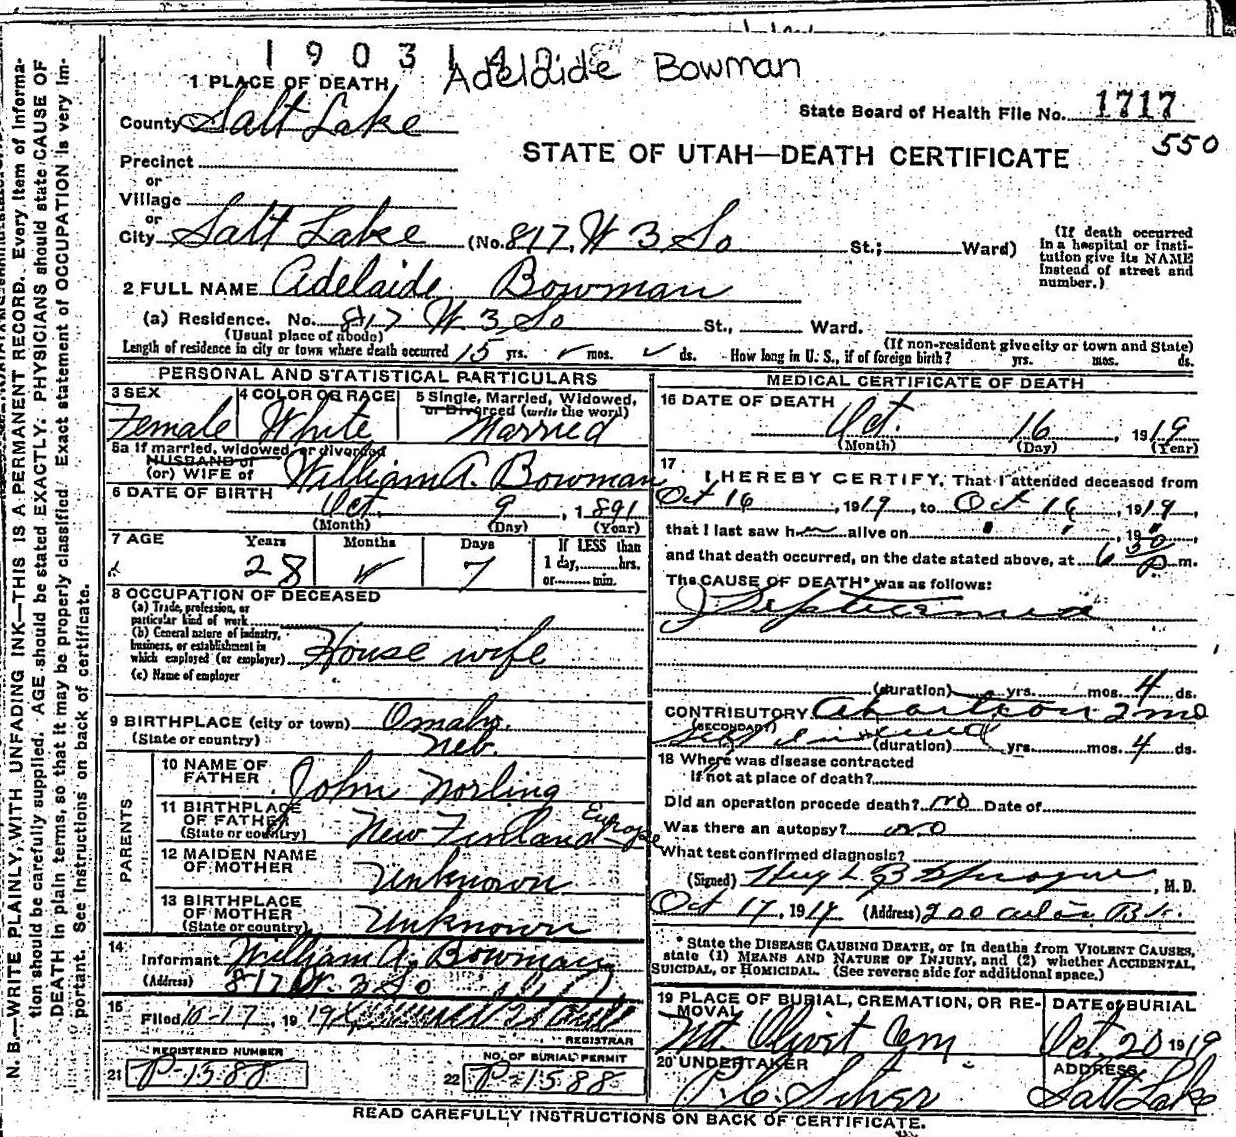 1 9 0 3 1 4
Adelaide Bowman
1 PLACE OF DEATH
County Salt Lake
State Board of Health File No. 1717
550
STATE OF UTAH—DEATH CERTIFICATE
Precinct
or
Village
or
City Salt Lake (No. 817 W 3 So St.; Ward)
(If death occurred in a hospital or insti-
tution give its NAME
instead of street and
number.)
2 FULL NAME Adelaide Bowman
(a) Residence. No. 817 W 3 So St., Ward.
(Usual place of abode) (If non-resident give city or town and State)
Length of residence in city or town where death occurred 15 yrs. ✓ mos. ✓ ds. How long in U. S., if of foreign birth? yrs. mos. ds.
PERSONAL AND STATISTICAL PARTICULARS
3 SEX Female
4 COLOR OR RACE White
5 Single, Married, Widowed,
or Divorced (write the word)
Married
5a If married, widowed or divorced
HUSBAND of
(or) WIFE of William A. Bowman
6 DATE OF BIRTH Oct. 9, 1891
(Month) (Day) (Year)
7 AGE Years Months Days If LESS than
1 day, hrs.
or min.
28 ✓ 7
8 OCCUPATION OF DECEASED
(a) Trade, profession, or
particular kind of work
(b) General nature of industry,
business, or establishment in
which employed (or employer) House wife
(c) Name of employer
9 BIRTHPLACE (city or town) Omaha
(State or country) Neb.
PARENTS
10 NAME OF
FATHER John Norling
11 BIRTHPLACE
OF FATHER
(State or country) New Finland Europe
12 MAIDEN NAME
OF MOTHER Unknown
13 BIRTHPLACE
OF MOTHER
(State or country) Unknown
14
Informant William A. Bowman
(Address) 817 W. 3 So
15
Filed 10-17, 1919
REGISTRAR
REGISTERED NUMBER
21 P-1588
NO. OF BURIAL PERMIT
22 P-1588
MEDICAL CERTIFICATE OF DEATH
16 DATE OF DEATH
Oct. 16, 1919
(Month) (Day) (Year)
17
I HEREBY CERTIFY, That I attended deceased from
Oct 16, 1919, to Oct 16, 1919,
that I last saw her alive on " ", 19"
and that death occurred, on the date stated above, at 6 30 P. m.
The CAUSE OF DEATH* was as follows:
Septicemia
(duration) yrs. mos. 4 ds.
CONTRIBUTORY Abortion 2 mo
(SECONDARY) Self induced
(duration) yrs. mos. 4 ds.
18 Where was disease contracted
if not at place of death?
Did an operation procede death? no Date of
Was there an autopsy? no
What test confirmed diagnosis?
(Signed) Hugh B Sprague, M. D.
Oct 17, 1919 (Address)
* State the DISEASE CAUSING DEATH, or in deaths from VIOLENT CAUSES,
state (1) MEANS AND NATURE OF INJURY, and (2) whether ACCIDENTAL,
SUICIDAL, or HOMICIDAL. (See reverse side for additional space.)
19 PLACE OF BURIAL, CREMATION, OR RE-
MOVAL
Mt. Olivet Cem.
DATE of BURIAL
Oct. 20 1919
20 UNDERTAKER
ADDRESS
Salt Lake
READ CAREFULLY INSTRUCTIONS ON BACK OF CERTIFICATE.
N. B—WRITE PLAINLY, WITH UNFADING INK—THIS IS A PERMANENT RECORD. Every item of informa-
tion should be carefully supplied. AGE should be stated EXACTLY. PHYSICIANS should state CAUSE OF
DEATH in plain terms, so that it may be properly classified. Exact statement of OCCUPATION is very im-
portant. See instructions on back of certificate.